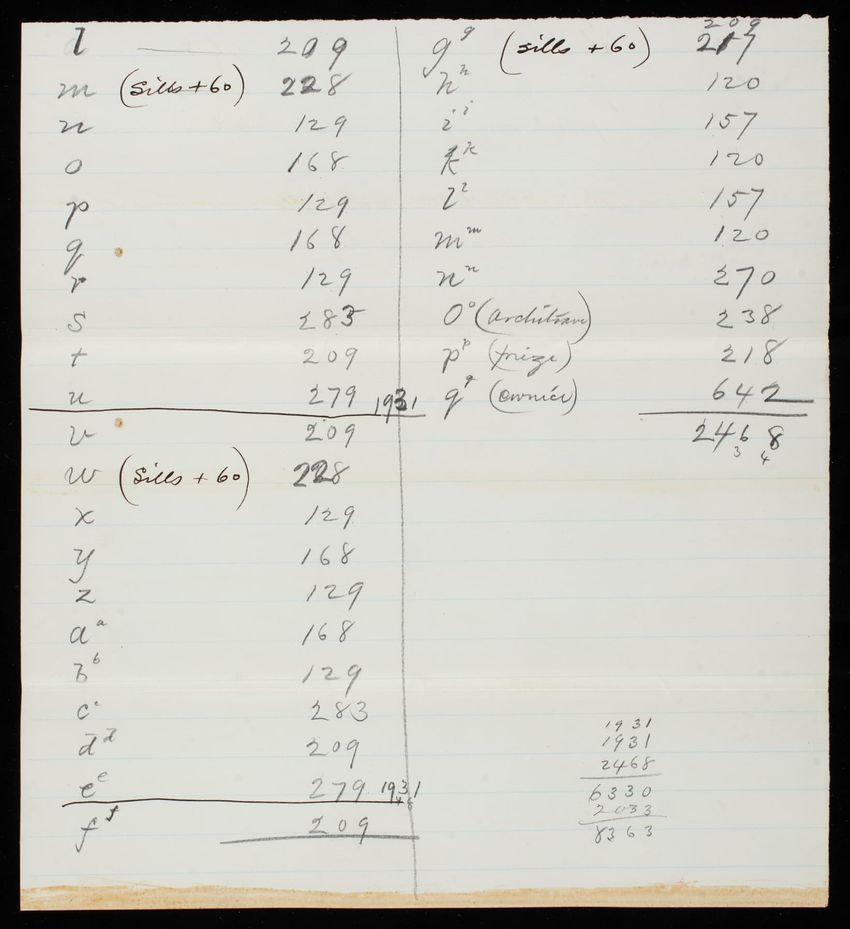 l — 209
m (Sills + 60) 228
n 129
o 168
p 129
q 168
r 129
s 283
t 209
u 279 1931
v 209
w (Sills + 60) 228
x 129
y 168
z 129
a a 168
b b 129
c c 283
d d 209
e e 279 1931
f f 209
209
g g (sills + 60) 217
h h 120
i i 157
k k 120
l l 157
m m 120
n n 270
O o (architrave) 238
p p (frize) 218
q q (cornice) 642
2468
3 4
1931
1931
2468
6330
2033
8363